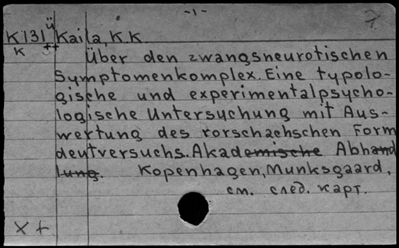 -1-
7
ü
K131 Kaila, K.K.
K ++ Über den zwangsneurotischen
Symptomenkomplex. Eine typolo-
gische und experimentalpsycho-
logische Untersuchung mit Aus-
wertung des rorschachschen Form
deutversuchs. Akademische Abhand
lung. Kopenhagen, Munksgaard,
см. след. карт.
X+